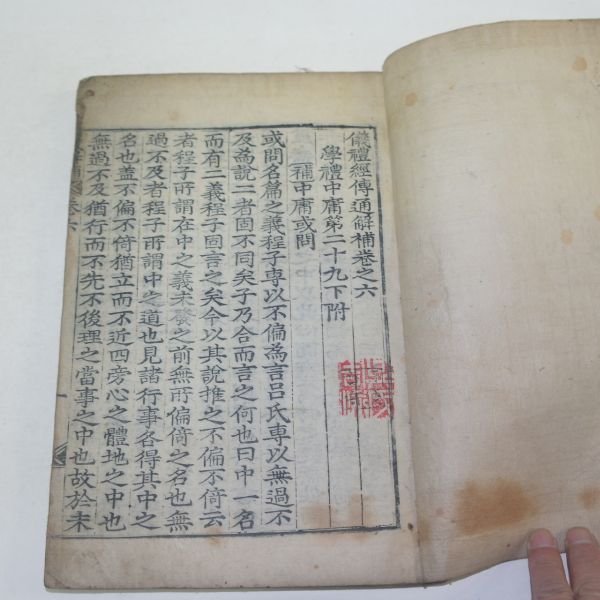 儀禮經傳通解補卷之六
學禮中庸第二十九下附
補中庸或問
或問名篇之義程子專以不偏為言吕氏專以無過不
及為說二者固不同矣子乃合而言之何也曰中一名
而有二義程子固言之矣今以其說推之不偏不倚云
者程子所謂在中之義未發之前無所偏倚之名也無
過不及者程子所謂中之道也見諸行事各得其中之
名也盖不偏不倚猶立而不近四旁心之體地之中也
無過不及猶行而不先不後理之當事之中也故於未
卷六